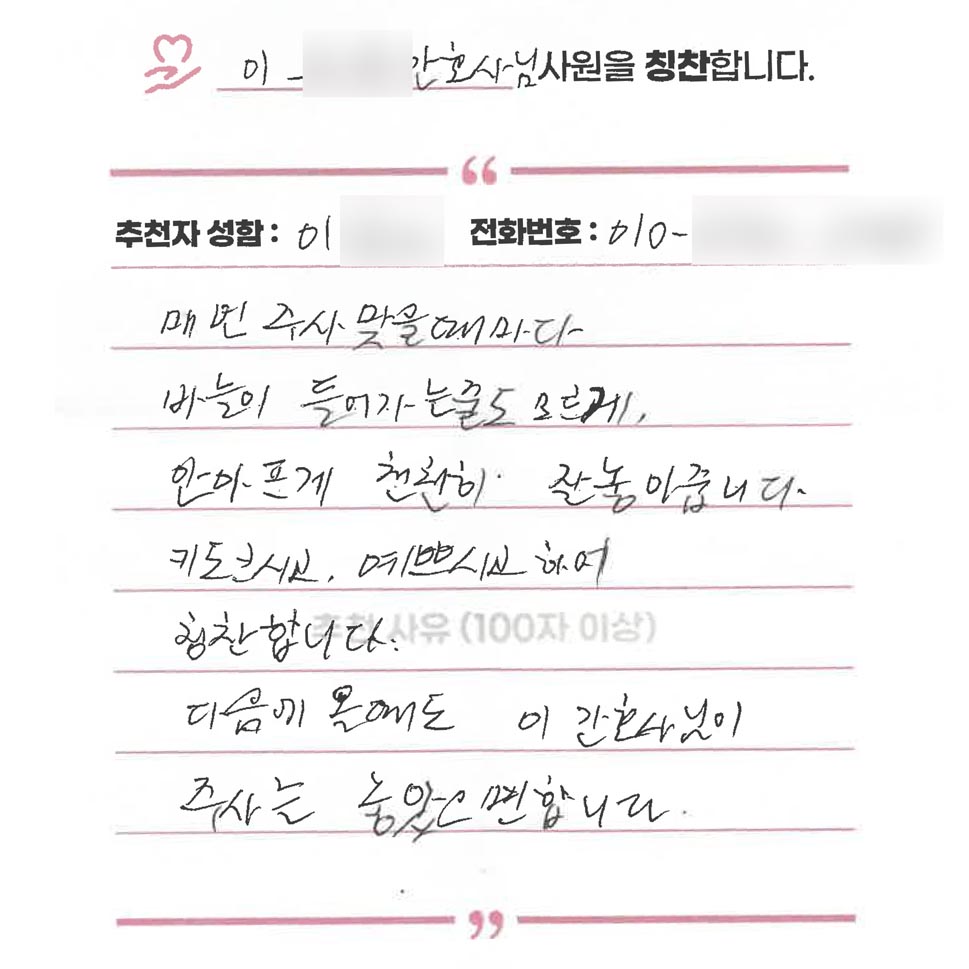 이 간호사님 사원을 칭찬합니다.
추천자 성함 : 이 전화번호 : 010-
매번 주사 맞을때마다
바늘이 들어가는줄도 모르게,
안아프게 천천히 잘놓아줍니다.
키도크시고, 예쁘시고 하여
추천 사유 (100자 이상)
칭찬합니다.
다음에 올때도 이 간호사님이
주사는 놓았으면합니다.